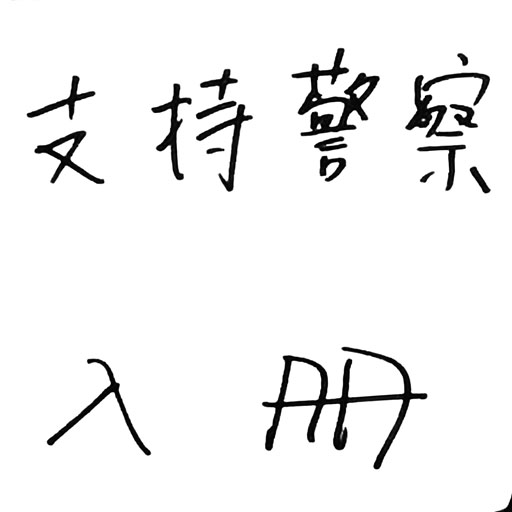 支持警察
入册